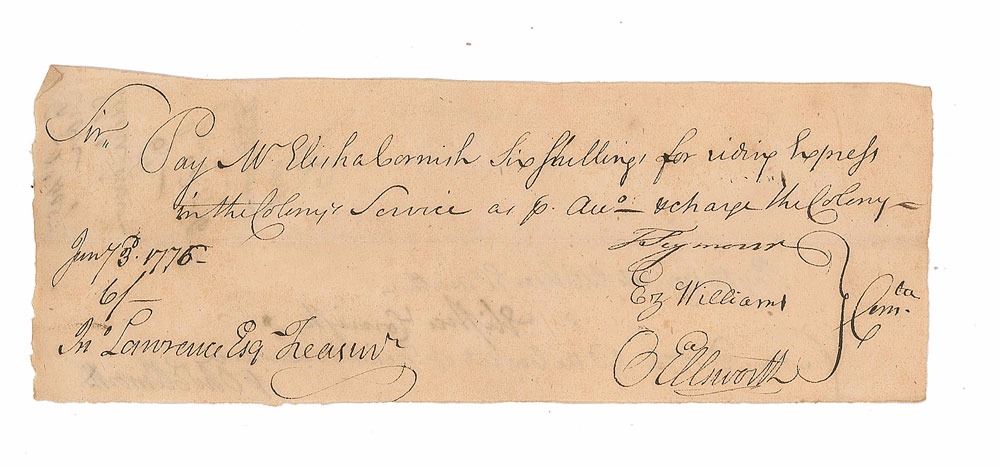 Sir,,
Pay Mr Elisha Cornish Six Shillings for riding Express
in the Colony's Service as p. Acco & charge the Colony
Jany 3d. 1776
6/–
T Seymour
Ez Williams
O Ellsworth
Comtee
Jno Lawrence Esqr Treasurr